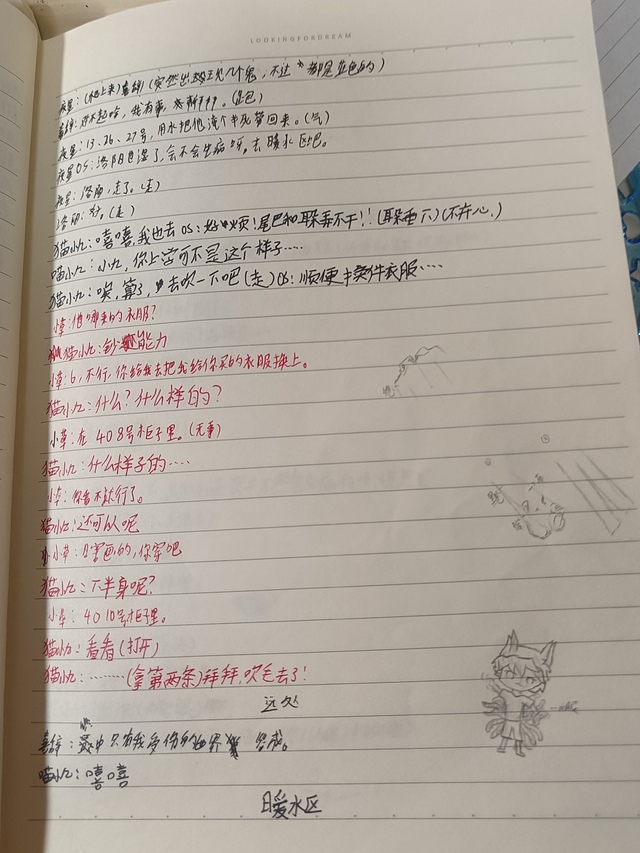 LOOKINGFORDREAM
夜星:(追上来)嘉绯!(突然出现几个鬼,不过都是蓝色的)
嘉绯:对不起哈,我有事,先制999。(跑)
夜星:13、26、27号,用水把他浇个半死带回来。(气)
夜星OS:洛阳也湿了,会不会生病呀。去暖水区吧。
夜星:洛阳,走了。(走)
洛阳:好。(走)
猫小九:嘻嘻,我也去OS:好烦!尾巴和耳朵弄不干!!(耳朵垂下)(不开心)
喵小九:小九,你上官可不是这个样子····
猫小九:唉,算了,去吹一下吧(走)OS:顺便换件衣服····
小草:他哪来的衣服?
猫小九:钞能力
小草:6,不行,你给我去把我给你买的衣服换上。
猫小九:什么?什么样的?
小草:在408号柜子里。(无事)
猫小九:什么样子的····
小草:你看不就行了。
猫小九:还可以呢
小草:日常画的,你穿吧
猫小九:下半身呢?
小草:4010号柜子里。
猫小九:看看(打开)
猫小九:········(拿第两条)拜拜,吹毛去了!
远处
嘉绯:只有我受伤的世界
喵小九:嘻嘻
暖水区